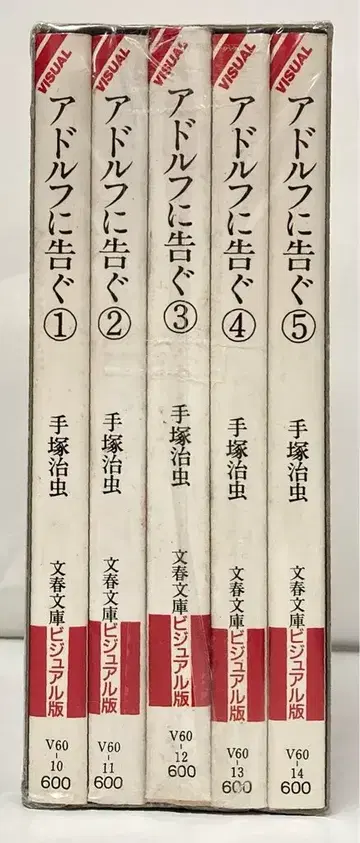 VISUAL
アドルフに告ぐ①
手塚治虫
文春文庫ビジュアル版
V60
-10
600
VISUAL
アドルフに告ぐ②
手塚治虫
文春文庫ビジュアル版
V60
-11
600
VISUAL
アドルフに告ぐ③
手塚治虫
文春文庫ビジュアル版
V60
-12
600
VISUAL
アドルフに告ぐ④
手塚治虫
文春文庫ビジュアル版
V60
-13
600
VISUAL
アドルフに告ぐ⑤
手塚治虫
文春文庫ビジュアル版
V60
-14
600